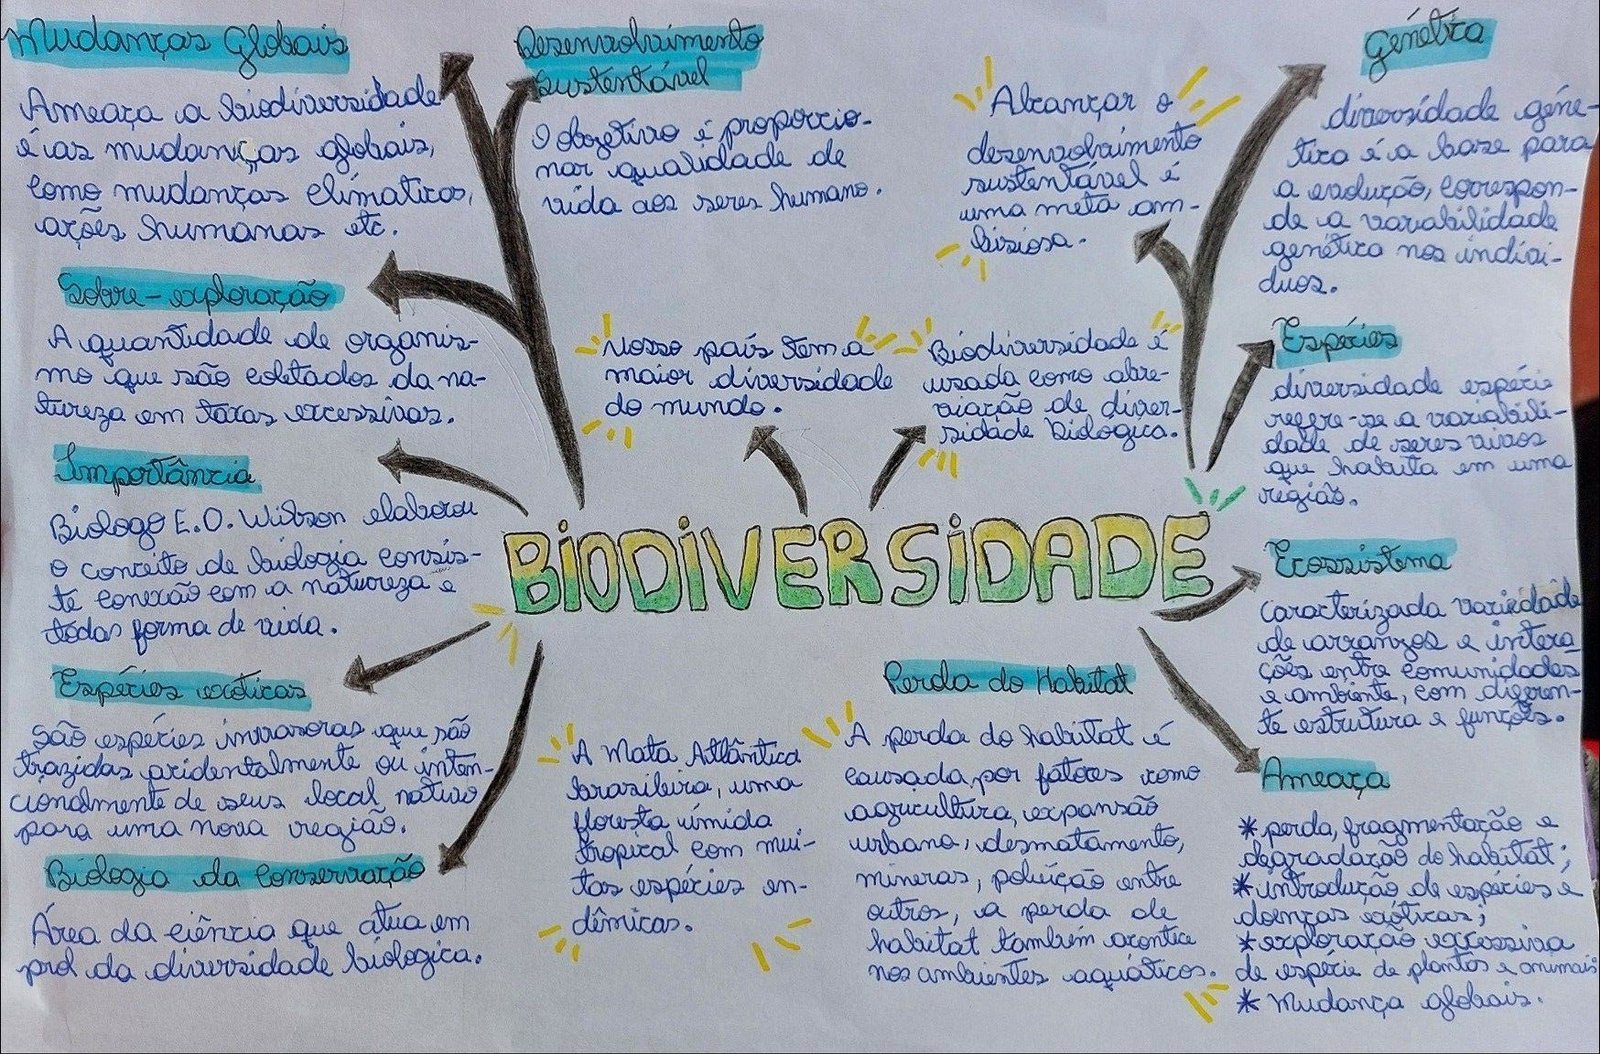 Mudanças Globais
Ameaça a biodiversidade
é as mudanças globais,
como mudanças climáticas,
ações humanas etc.
Sobre-exploração
A quantidade de organis-
mo que são coletados da na-
tureza em taxas excessivas.
Importância
Biologo E.O. Wilson elaborou
o conceito de biologia consis-
te conexão com a natureza e
todas forma de vida.
Espécies exóticas
são espécies invasoras que são
trazidas acidentalmente ou inten-
cionalmente de seus local nativo
para uma nova região.
Biologia da Conservação
Área da ciência que atua em
prol da diversidade biológica.
Desenvolvimento
Sustentável
O objetivo é proporcio-
nar qualidade de
vida aos seres humano.
Nosso país tem a
maior diversidade
do mundo.
Alcançar o
desenvolvimento
sustentável é
uma meta am-
bisiosa.
Biodiversidade é
usada como abre-
viação de diver-
sidade Biologica.
BIODIVERSIDADE
A Mata Atlântica
brasileira, uma
floresta úmida
tropical com mui-
tas espécies en-
dêmicas.
Perda do Habitat
A perda do habitat é
causada por fatores como
agricultura, expansão
urbana, desmatamento,
mineras, poluição entre
outros, a perda de
habitat também acontice
nos ambientes aquáticos.
Genética
diversidade gêne-
tica é a base para
a evolução, correspon-
de a variabilidade
genética nos indiví-
duos.
Espécies
diversidade espécie
refere-se a variabili-
dade de seres vivos
que habita em uma
região.
Ecossistema
Caracterizada variedade
de arranjos e intera-
ções entre comunidades
e ambiente, com diferen-
te estrutura e funções.
Ameaça
* perda, fragmentação e
degradação do habitat;
* introdução de espécies e
doenças exóticas;
* exploração excessiva
de espécie de plantas e animais
* Mudança globais.